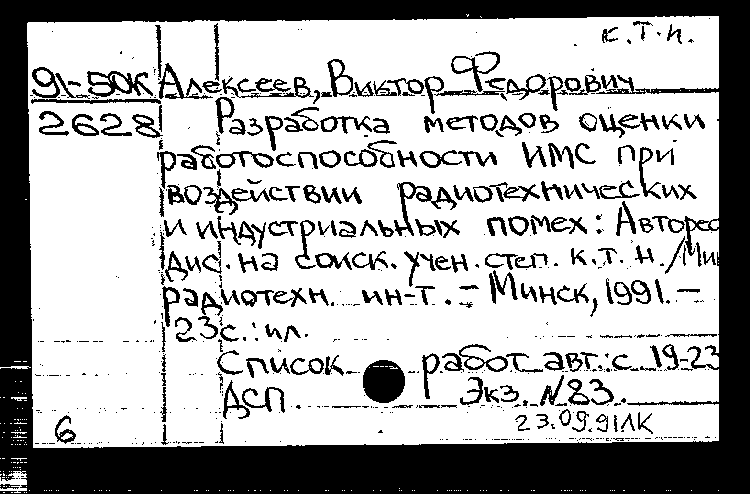 к.т.н.
91-50К Алексеев, Виктор Федорович
2628 Разработка методов оценки
работоспособности ИМС при
воздействии радиотехнических
и индустриальных помех: Автореф
дис. на соиск. учен. степ. к.т.н. /Мин
радиотехн. ин-т. - Минск, 1991. -
23с.: ил.
Список работ авт.: с 19-23
ДСП. Экз. N83.
6 23.09.91ЛК